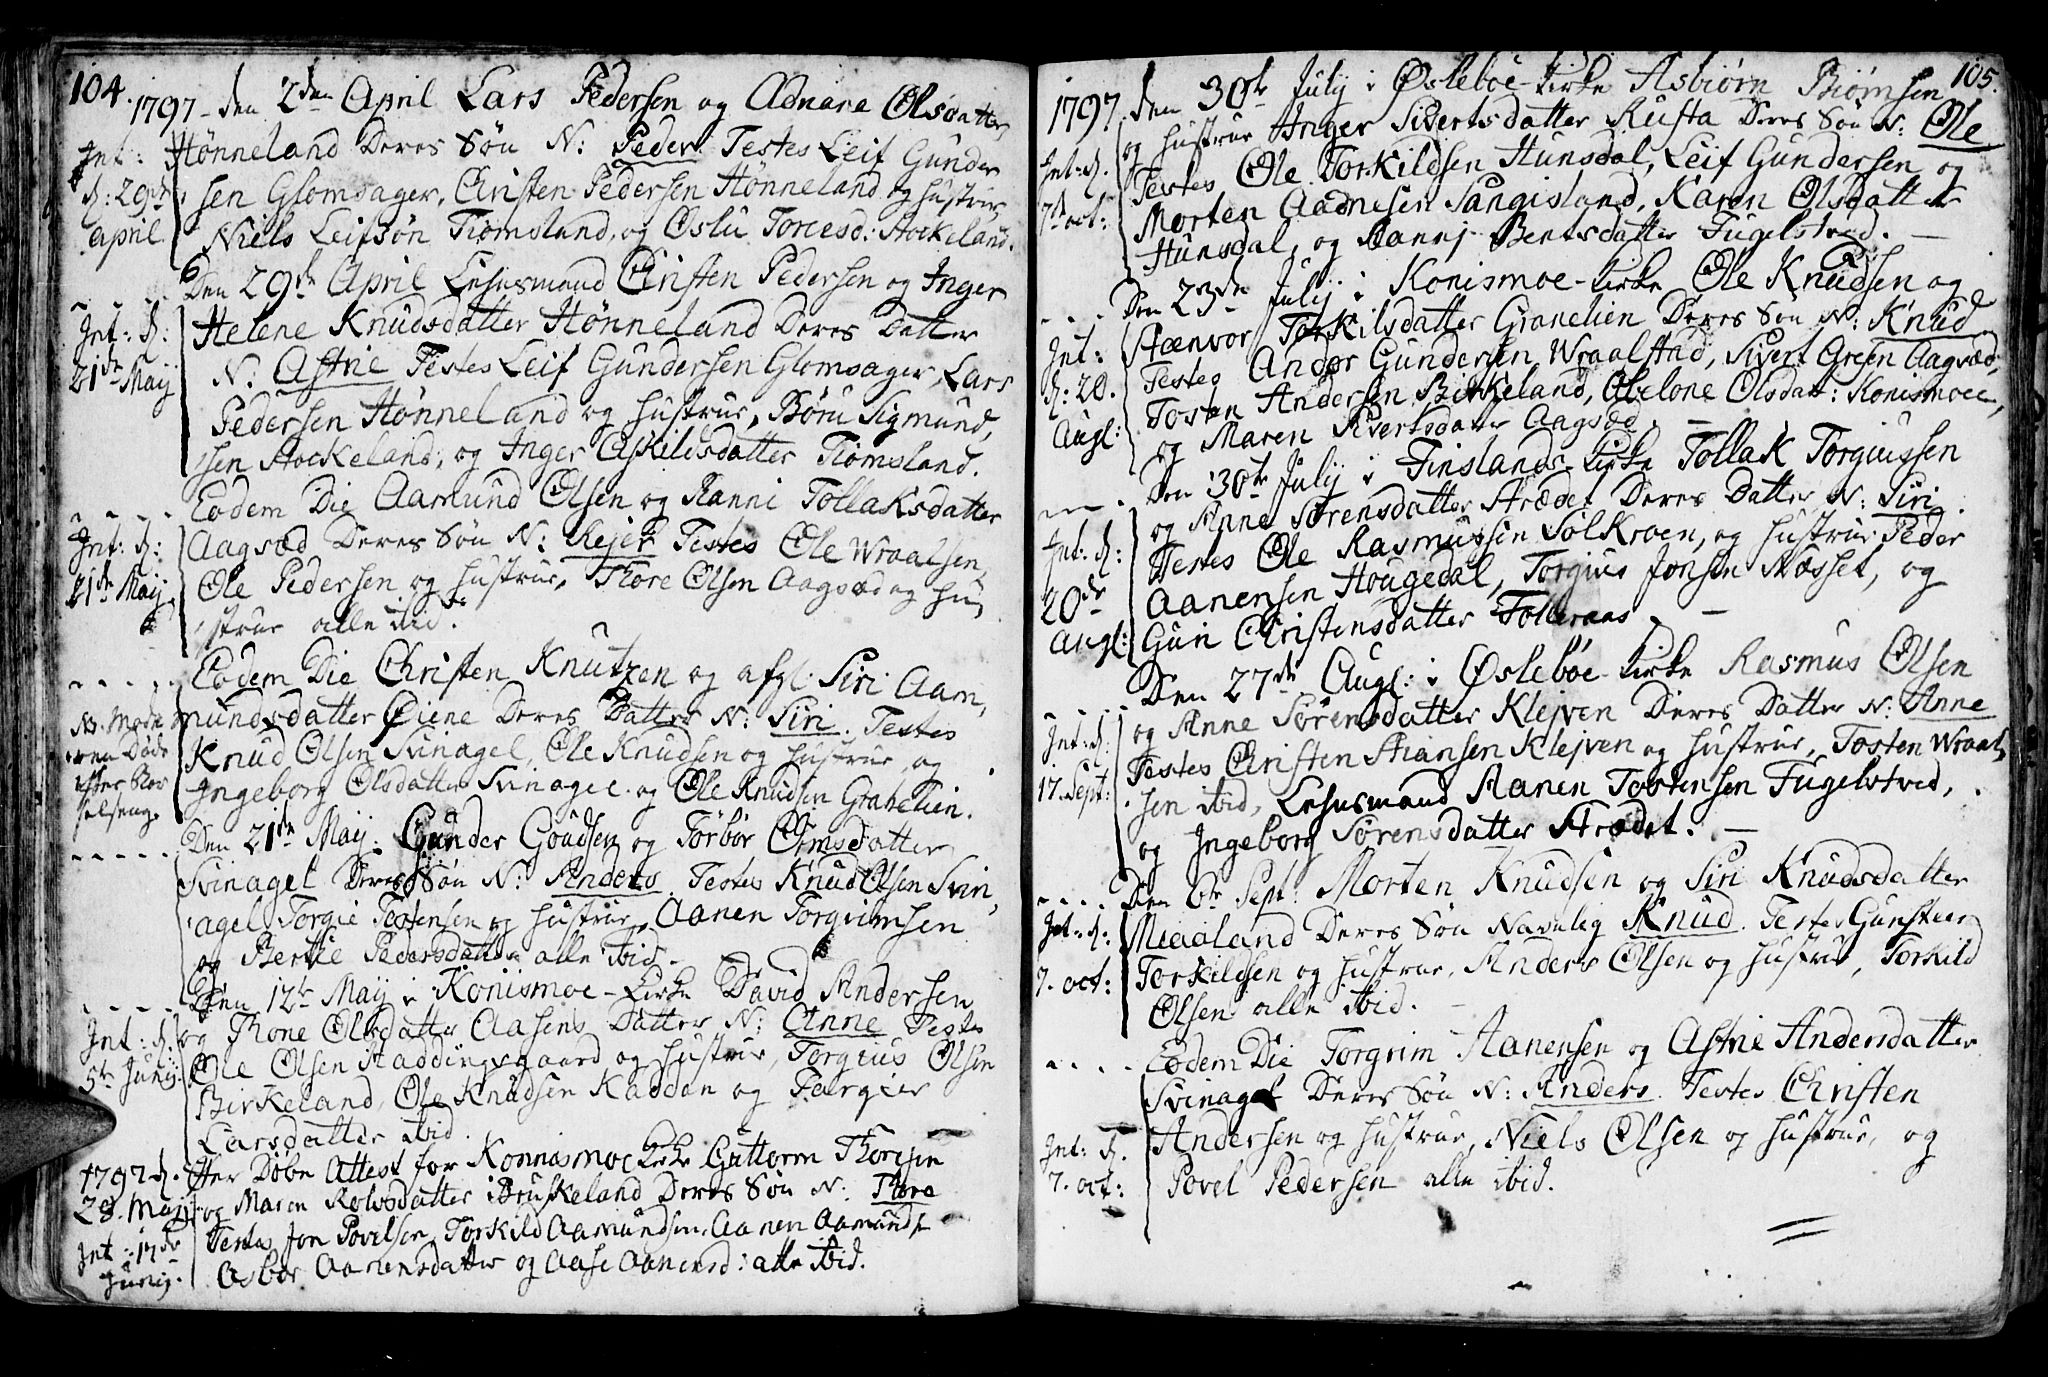 104.
1797 - den 2den April Lars Pedersen og Adnare Olsdatter
Int: Hönneland Deres Sön N: Peder Testes Leif Gunder
d: 29de sen Glomsager, Christen Pedersen Hönneland og hustrue,
april Niels Leifsön Tiomsland, og Oslu Torcesd: Stockeland.
Den 29de April Lehnsmand Christen Pedersen og Inger
Int: d: Helene Knudsdatter Hönneland Deres Datter
21de Maij N: Astrie Testes Leif Gundersen Glomsager, Lars
Pedersen Hönneland og hustrue, Böru Sigmund,
sen Stockeland, og Inger Askildsdatter Tiomsland.
Eodem Die Aamund Olsen og Ranni Tollaksdatter
Int: d: Aagsæd Deres Sön N: Rejer Testes Ole Wraalsen,
21de Maij. Ole Pedersen og hustrue, Thore Olsen Aagsæd og hu,
strue alle ibid.
Eodem Die Christen Knutzen og afgl: Siri Aam,
N. Mode mundsdatter Öiene Deres Datter N: Siri. Testes
ren Döde Knud Olsen Svinagel, Ole Knudsen og hustrue, og
efter Bar Ingeborg Olsdatter Svinagel og Ole Knudsen Granelien.
selseng.
Den 21de Maij. Gunder Goudsen og Torbor Omsdatter
Svinagel Deres Sön N: Anders. Testes Knud Olsen Svin,
agel Torgie Tostensen og hustrue, Aanen Torgrimsen
og Berthe Pedersdatter alle ibid.
Den 12te Maij i Konismoe - Kirke David Andersen
Int: d. og Thone Olsdatter Aasens Datter N: Anne Testes
5te Junij. Ole Olsen Haddingsgaard og hustrue, Torgius Olsen
Birkeland, Ole Knudsen Kaddan og
Larsdatter ibid.
1797 d. Efter Döbe Attest for Konnismoe Kirke Guttorm Thoresen
28. Maij og Maren Rolvsdatter i Bruskeland Deres Sön N. Thore
Int: 17de Testes Jon Povelsen, Torkild Aamundsen, Aanen Aamunds,
Junij. Asbor Aanensdatter og Aase Aanensd: alle ibid.
105.
1797. den 30te Julij i Ösleböe - Kirke Asbiörn Biörnsen
og hustrue Inger Sivertsdatter Rusta Deres Sön N: Ole
Int: d. Testes Ole Torkildsen Hunsdal, Leif Gundersen og
7de oct: Morten Aadnesen Sangisland, Karen Olsdatter
Hunsdal, og Ranni Bentsdatter Fugelstved.
Den 23de Julij i Konismoe - Kirke Ole Knudsen og
Int: Staenvor Torkilsdatter Granelien Deres Sön N: Knud
d: 20. Testes Andor Gundersen Wraalstad, Sivert Gresen Aagsæd,
Augl: Tosten Andersen Birkeland, Abelone Olsdatt: Konismoe,
og Maren Sivertsdatter Aagsæd.
Den 30te Julij i Finslands - Kirke Tollak Torgiussen
og Anne Sörensdatter Strædet Deres Datter N: Siri.
Int: d: Testes Ole Rasmussen Solkroen, og hustrue Peder
20de Aanensen Hougedal, Torgius Jonsen Næsset, og
Augl: Guri Christensdatter Tolleraas.
Den 27de Augl: i Ösleböe - Kirke Rasmus Olsen
og Anne Sörensdatter Klejven Deres Datter N: Anne
Int: d: Testes Christen Stiansen Klejven og hustrue, Tosten Wraal,
17. Sept: sen ibid, Lehnsmand Aanen Tostensen Fugelstved,
og Ingeborg Sörensdatter Strædet.
Den 6te Sept: Morten Knudsen og Siri Knudsdatter
Int: d: Miaaland Deres Sön Navnlig Knud. Testes Gunsteen
7. oct: Torkildsen og hustrue, Anders Olsen og hustrue, Torkild
Olsen alle ibid.
Eodem Die Torgrim Aanensen og Astrie Andersdatter
Svinagel Deres Sön N: Anders. Testes Christen
Int: d. Andersen og hustrue, Niels Olsen og hustrue, og
7. oct: Povel Pedersen alle ibid.